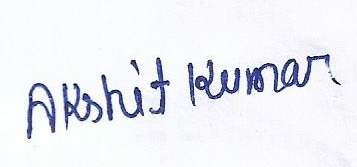 Akshit Kumar